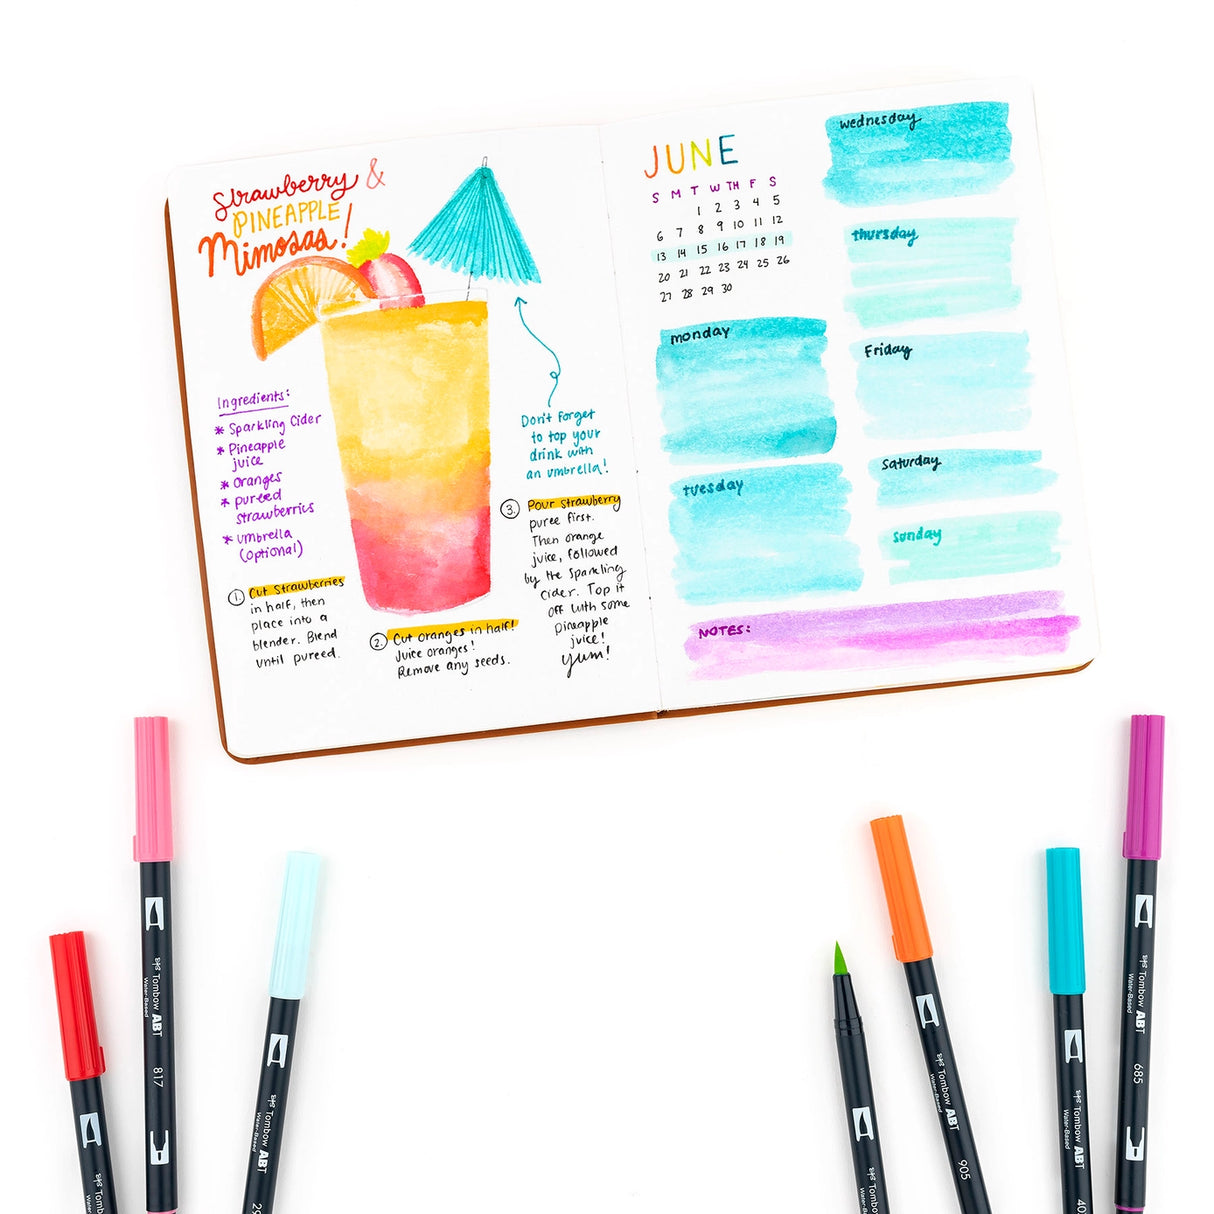 Strawberry &
PINEAPPLE
Mimosas!
Ingredients:
* Sparkling Cider
* Pineapple
juice
* oranges
* pureed
strawberries
* umbrella
(optional)
Don't forget
to top your
drink with
an umbrella!
1. Cut Strawberries
in half, then
place into a
blender. Blend
until pureed.
2. Cut oranges in half!
Juice oranges!
Remove any seeds.
3. Pour strawberry
puree first.
Then orange
juice, followed
by the sparkling
cider. Top it
off with some
pineapple
juice!
yum!
JUNE
S M T W TH F S
1 2 3 4 5
6 7 8 9 10 11 12
13 14 15 16 17 18 19
20 21 22 23 24 25 26
27 28 29 30
monday
tuesday
wednesday
thursday
Friday
saturday
sunday
NOTES:
Tombow ABT
Water-Based
817
Tombow ABT
Water-Based
29
Tombow ABT
Water-Based
905
Tombow ABT
Water-Based
40
Tombow ABT
Water-Based
685